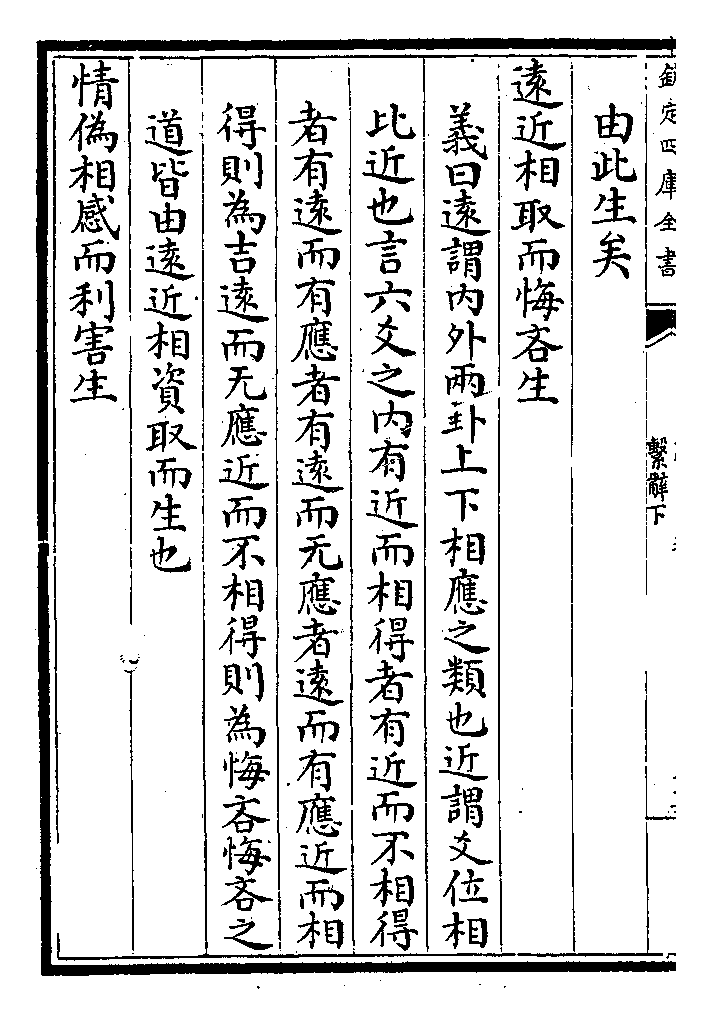 欽定四庫全書
繫辭下
由此生矣
遠近相取而悔吝生
義曰遠謂内外兩卦上下相應之類也近謂爻位相
比近也言六爻之内有近而相得者有近而不相得
者有遠而有應者有遠而无應者遠而有應近而相
得則為吉遠而无應近而不相得則為悔吝悔吝之
道皆由遠近相資取而生也
情偽相感而利害生